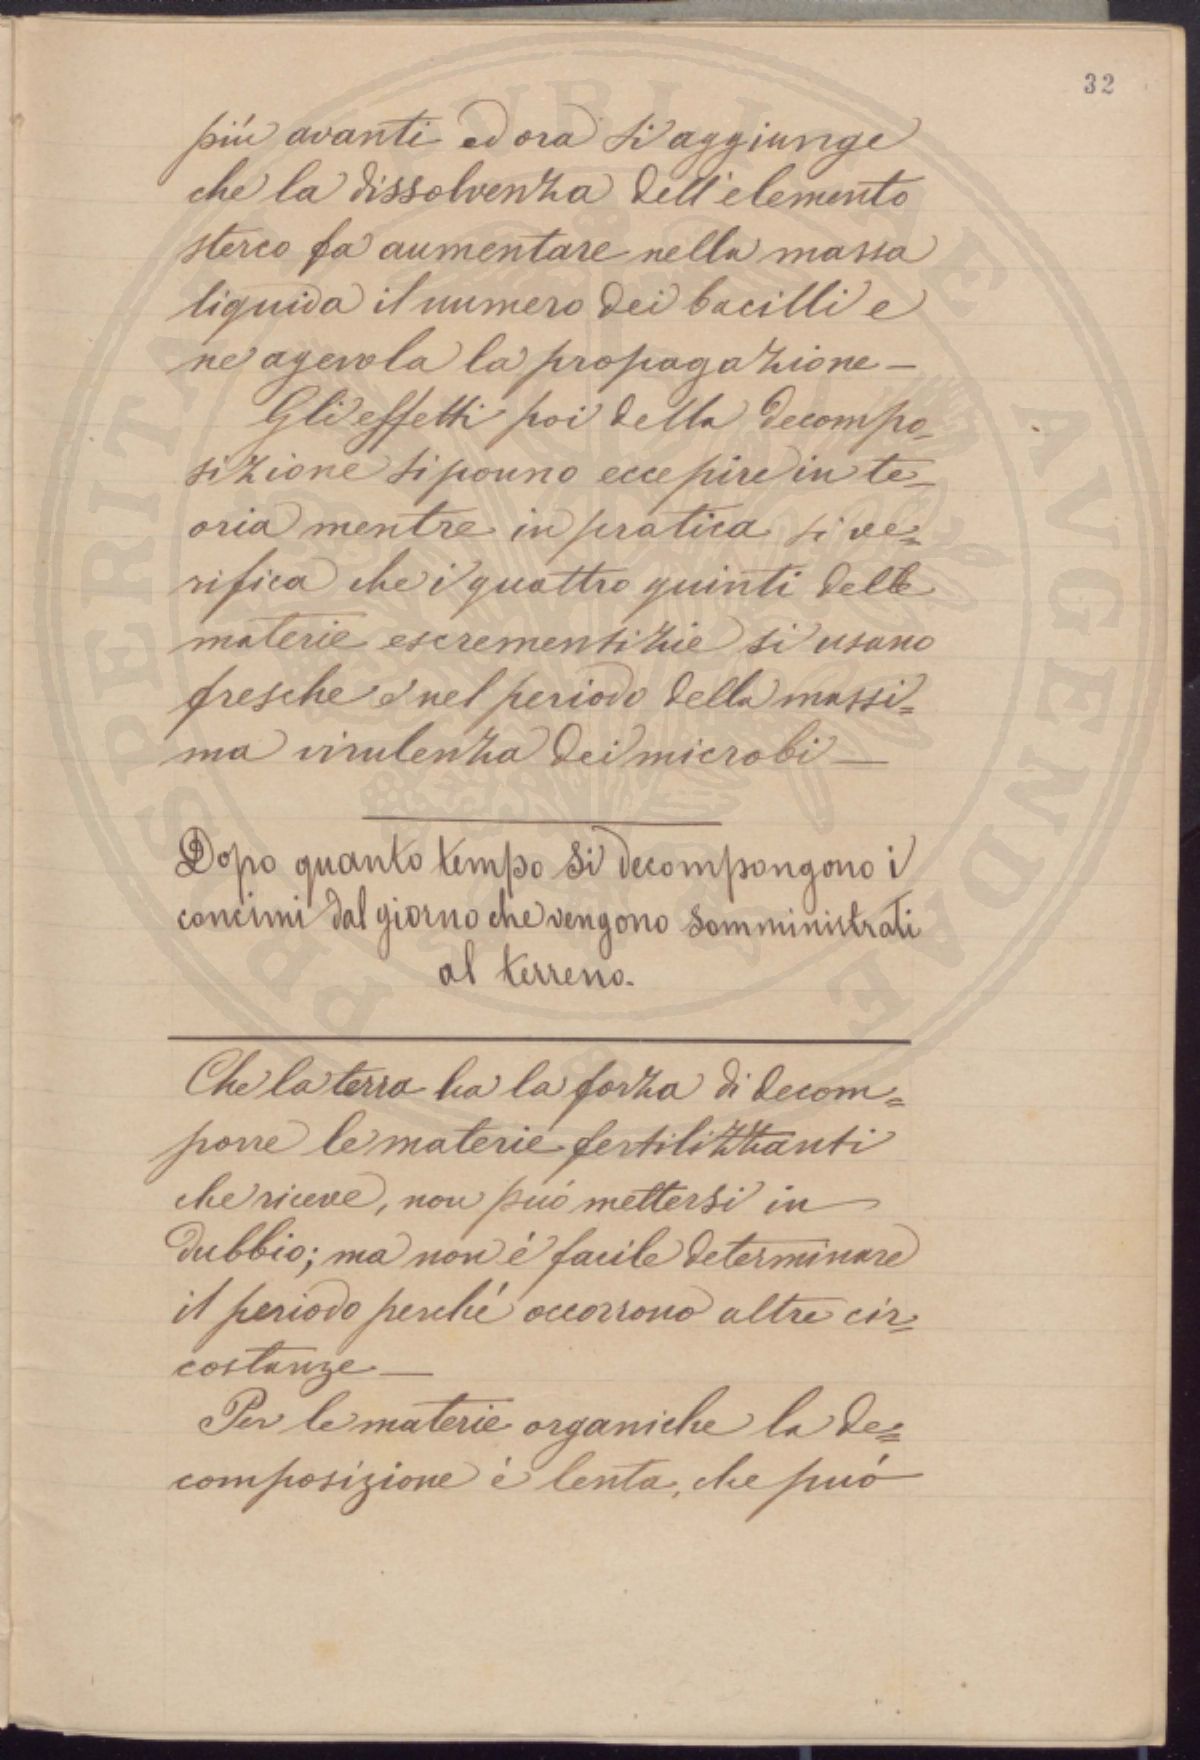 32
più avanti ed ora si aggiunge
che la dissolvenza dell'elemento
sterco fa aumentare nella massa
liquida il numero dei bacilli e
ne agevola la propagazione —
Gli effetti poi della decompo-
sizione si pouno eccepire in te-
oria mentre in pratica si ve=
rifica che i quattro quinti delle
materie escrementizie si usano
fresche e nel periodo della massi=
ma virulenza dei microbi —
Dopo quanto tempo si decompongono i
concimi dal giorno che vengono somministrati
al terreno.
Che la terra ha la forza di decom=
porre le materie fertilizzanti
che riceve, non può mettersi in
dubbio; ma non é facile determinare
il periodo perché occorrono altre cir=
costanze —
Per le materie organiche la de=
composizione è lenta, che può
PUBLICAE PROSPERITATI AVGENDAE